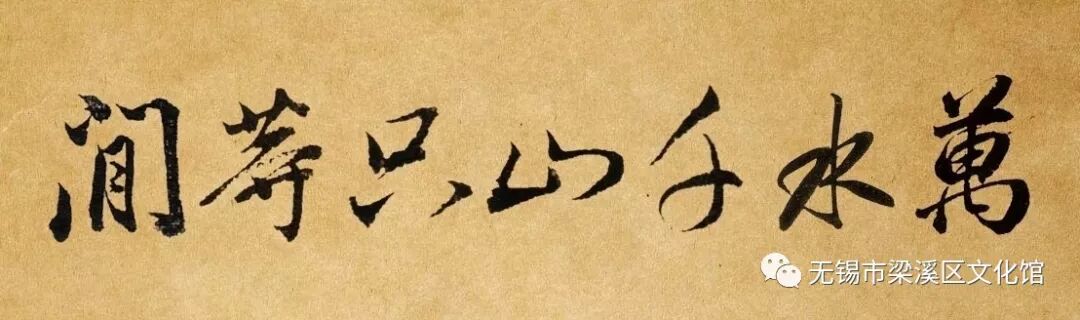 萬水千山只等閒
无锡市梁溪区文化馆